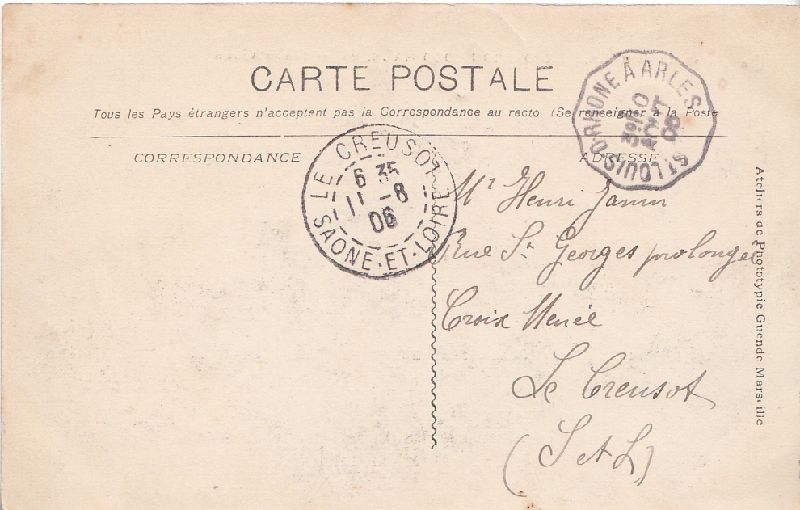 CARTE POSTALE
Tous les Pays étrangers n'acceptent pas la Correspondance au recto (Se renseigner à la Poste
CORRESPONDANCE
ADRESSE
LE CREUSOT
6 35
11 - 8
06
SAONE-ET-LOIRE
ST LOUIS D RHONE À ARLES
AOUT
06
Mr Henri Janin
Rue St Georges prolongée
Croix Menée
Le Creusot
(S et L)
Ateliers de Phototypie Guende Marseille